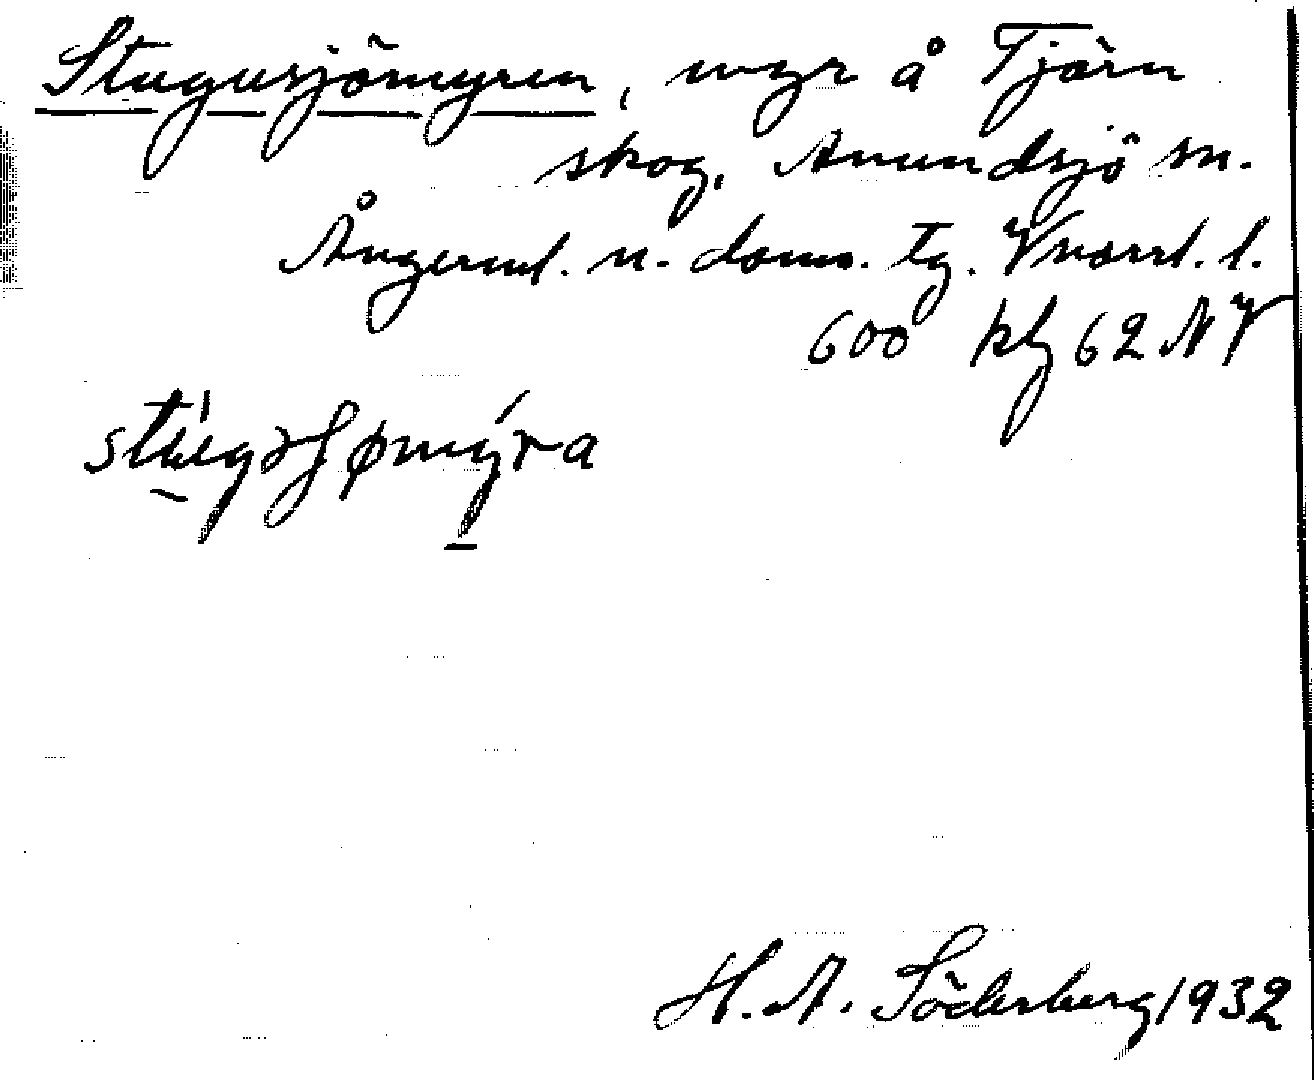 Stugusjömyren, myr å Tjärn
skog, Anundsjö sn.
Ångerml. n. doms. tg. Vnorrl. l.
600 kly 62 NV
H. A. Söderberg 1932